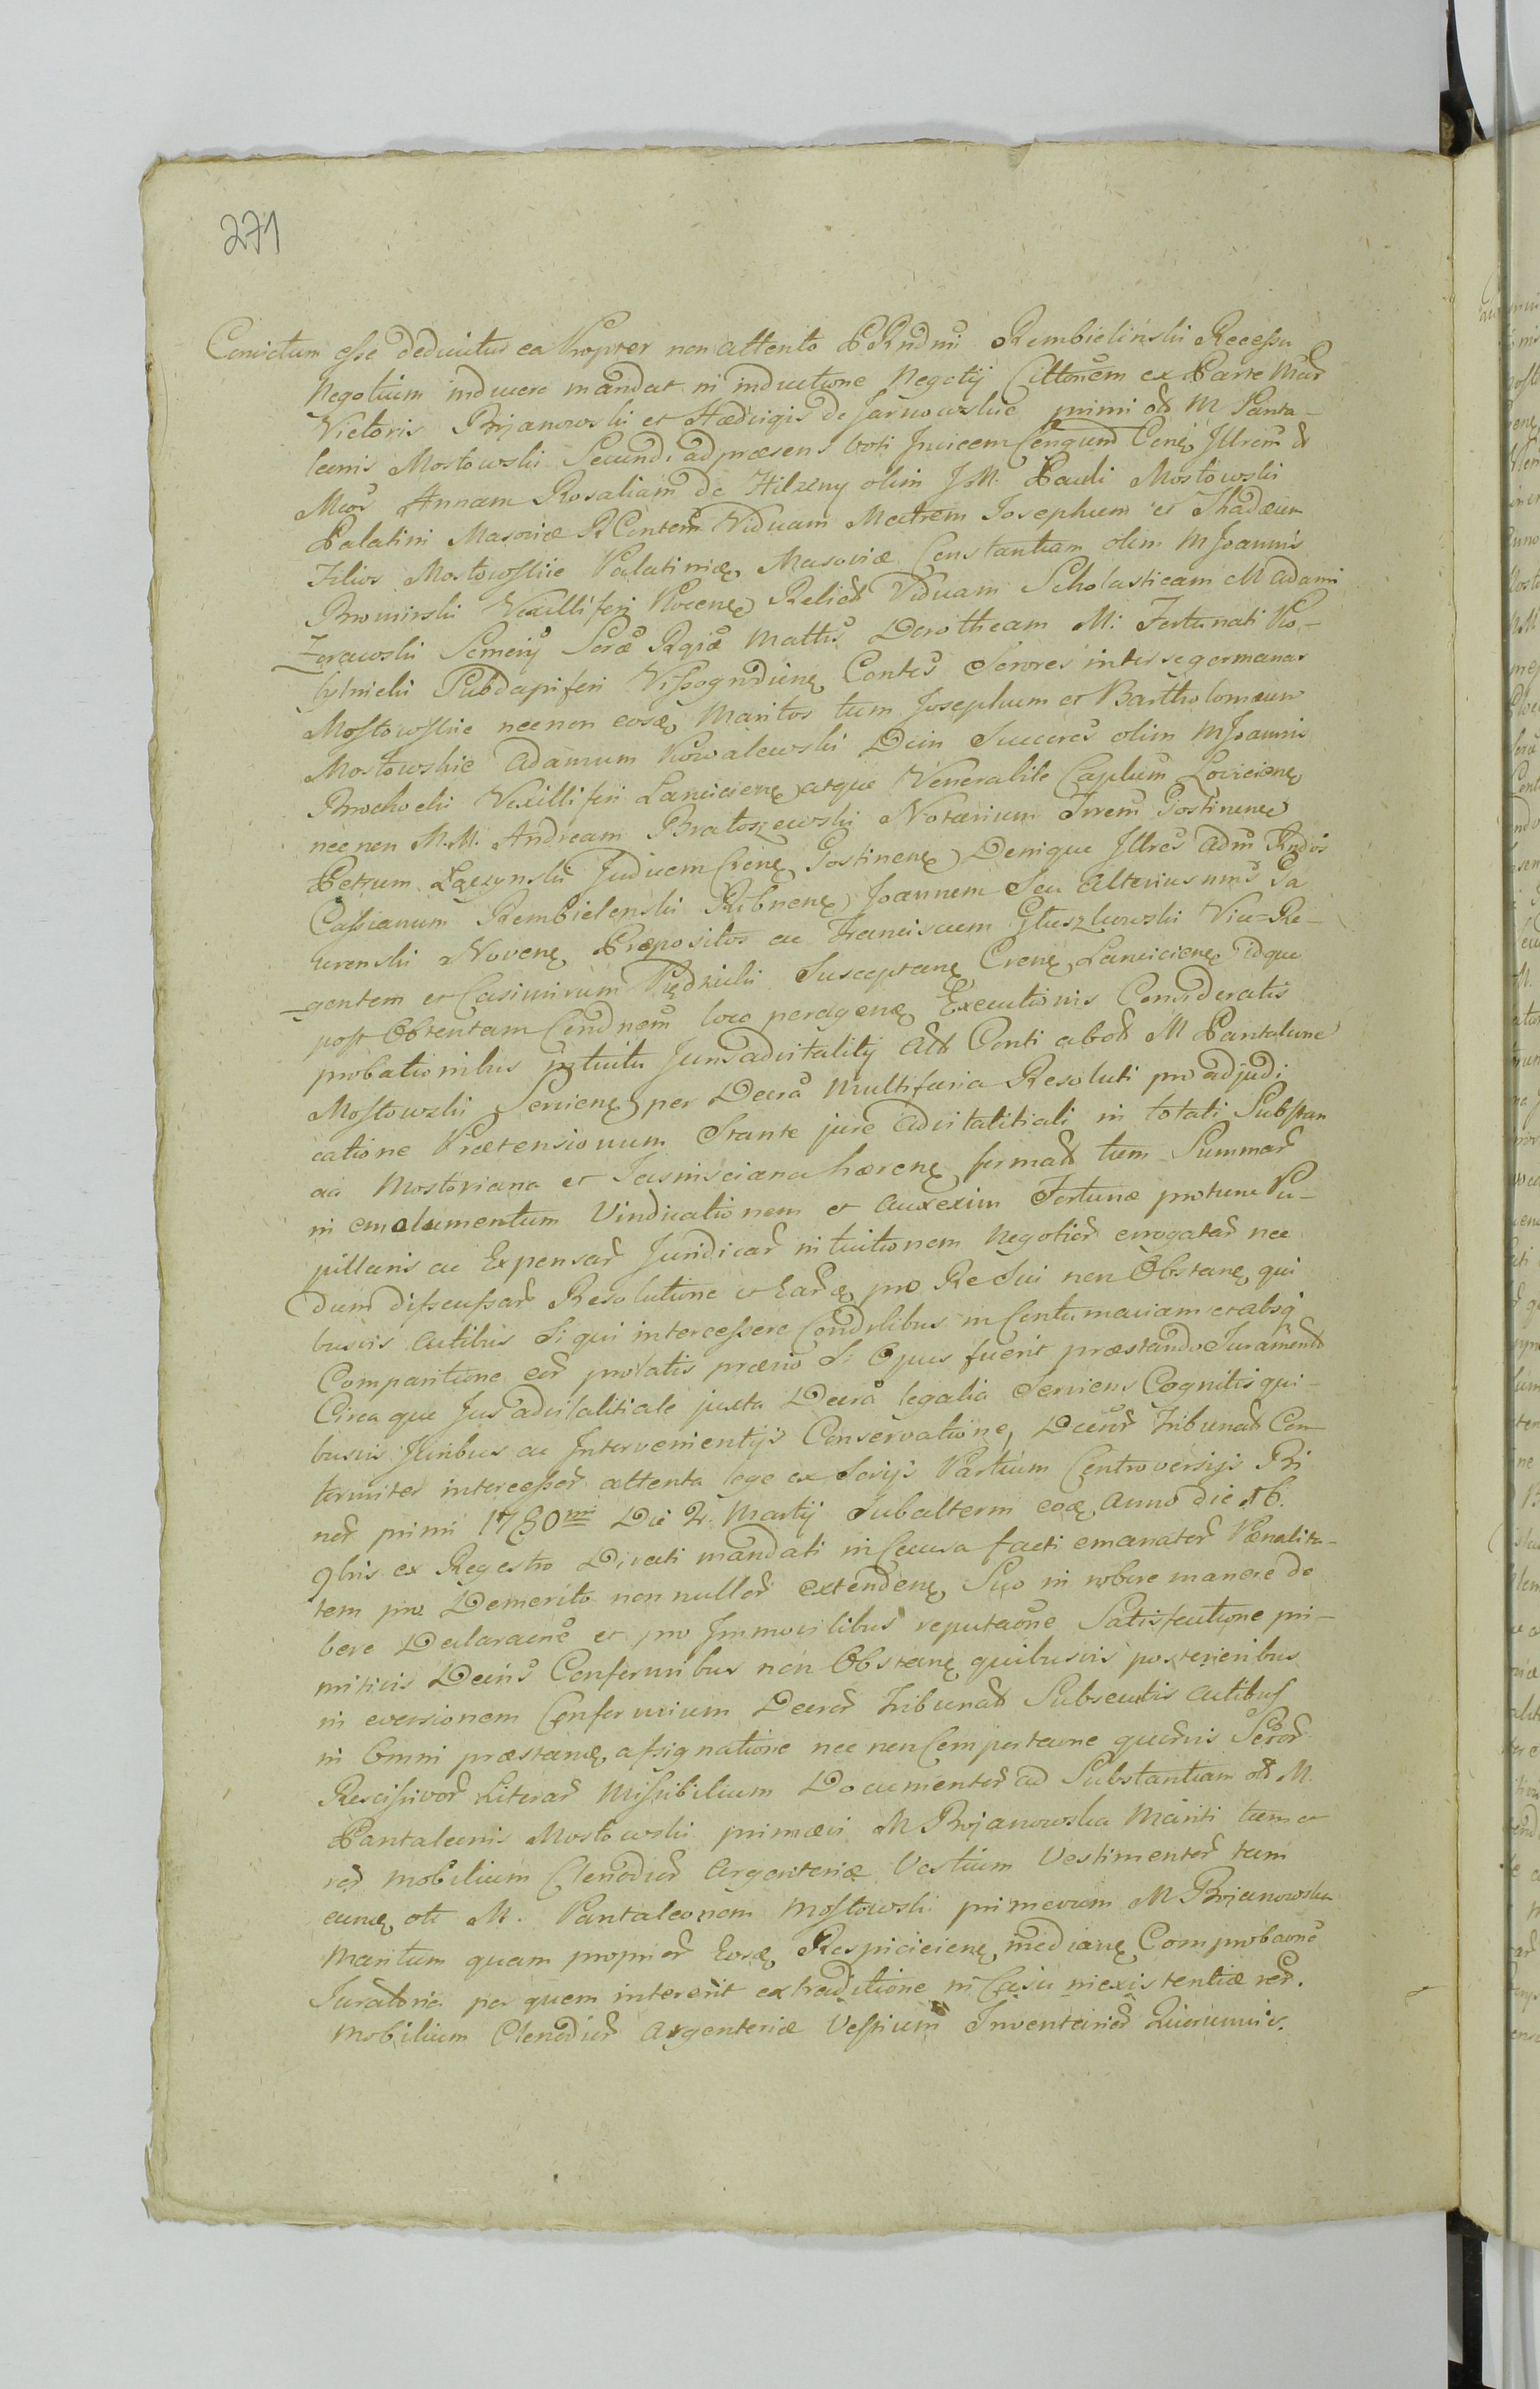 271
Convictum esse deducitus ea Propter non attento PRndmi Rembielinski Recessu
Negotium inducere mandat in inductione Negotij Cittonem ex Parte Mcor
Victoris Brjanowski et Hedvigis de Jarnowskie primi oth M Panta-
leonis Mostowski Secundi ad præsens voti Invicem Conjund Cenę Illrem &
Mcos Annam Rosaliam de Hilzeny olim JM. Pauli Mostowski
Palatini Masoviæ R Contem Viduam Matrem Josephum et Thadæum
Filios Mostowskie Palatiniæ Masoviæ Constantiam olim M Joannis
Bromirski Vexilliferi Plocenę Relict Viduam Scholasticam M Adami
Zerawski Semerij Scræ Rgiæ Mattis Dorotheam M: Fortunati Ko-
bylnicki Subdapiferi Vissogrodienę Contes Sorores inter se germanas
Mostowskie necnon eosę Maritos tum Josephum et Bartholomæum
Mostowskie Adamum Kowalewski Dein Succes olim M Joannis
Brochocki Vexilliferi Lancicienę atque Venerabile Caplum Lovicienę
necnon M.M. Andream Bratoszewski Notarium Trrem Gostinenę
Petrum Łączynski Judicem Crenę Gostinenę Denique Illres Adm Rndos
Cassianum Rembielenski Ribnenę Joannem Seu alterius nnis Pa
urenski Novenę Præpositos ac Franciscum Głuszkowski Vice-Re-
gentem et Casimirum Piędzicki Susceptanę Crenę Lancicienę idque
post Obtentam Condnem loco peragenę Executionis Consideratis
probationibus intuitu Juris advitalitij Actt Conti ab oth M Pantaleone
Mostowski Servienę per Decra Multifaria Resoluti pro adjudi
catione Prætensionum Stante jure advitalitiali in totali Substan
aa Mostoviana et Jasnisciana hærenę formatt tum Summar
in emolumentum Vindicationem et auxexim Fortunæ protunc Pu-
pillaris ac Expensar Juridicar in tuitionem Negotior errogatar nec
dum discussar Resolutione et Earę pro Re Sui non Obstanę qui
busvis actibus Si qui intercessere Condnlibus in Contumaciam et absq
Comparitione eor prolatis prævio Si Opus fuerit præstando Juramento
Circa que Jus advitalitiale juxta Decra legalia Serviens Cognitis qui-
busvis Juribus ac Intervenientijs Conservatione, Decror Tribunatt Con
formiter intercessor attenta lege ex Serijs Partium Controversijs Pri
nor primi 1780mi Die 2. Martij Subalterni eoę Anno die 16.
9bris ex Registro Directi mandati in Causa facti emanator Pænalita-
tem pro Demerito non nullor extendenę Suo in robore manere de
bere Declaraone et pro Immovilibus reputaone Satisfactione pri-
mitivis Decris Conformibus non Obstanę quibusvis posterioribus
in eversionem Conformium Decror Tribunatt Subsecutis actibus
in Omni præstanę assignatione nec non Comportaone quorvis Seror
Rescissivor Literar Missibilium Documentor ad Substantiam oth M.
Pantaleonis Mostowski primævi M Brojanowska Mariti tum et
rer Mobilium Clenodior Argenteriæ Vestium Vestimentor tam
eunę oth M. Pantaleonem Mostowski primevum M Brjanowska
Maritum quam proprier Eosę Respicicienę medianę Comprobaone
Juratoria per quem intererit extraditione in Casu inexistentiæ rer.
Mobilium Clenodior Argenteriæ Vestium Inventarior